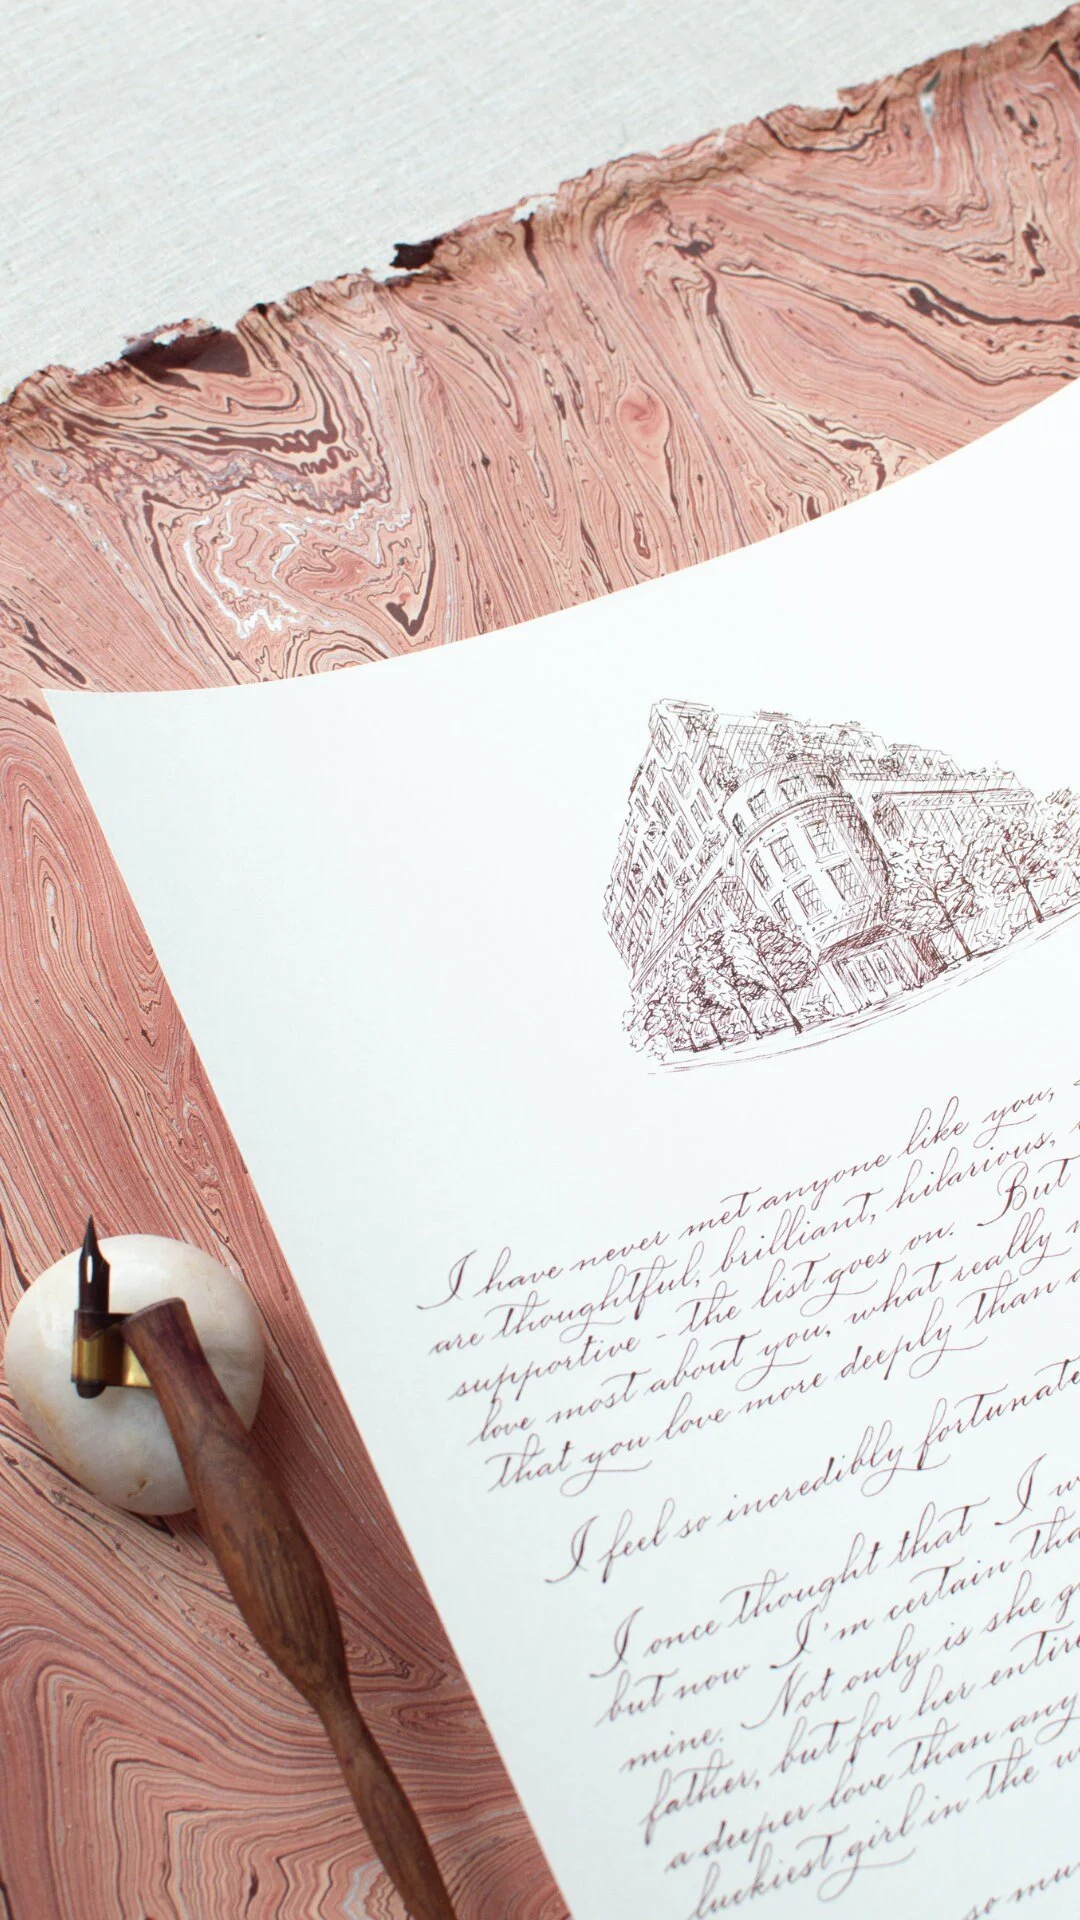 I have never met anyone like you,
are thoughtful, brilliant, hilarious,
supportive - the list goes on. But
love most about you, what really
that you love more deeply than
I feel so incredibly fortunate
I once thought that I
but now I'm certain
mine. Not only is she
father, but for her entire
a deeper love than any
luckiest girl in the
so